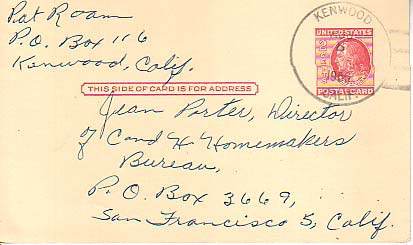 Pat Roam
P.O. Box 116
Kenwood, Calif.
KENWOOD
1956
CALIF.
UNITED STATES
POSTAL CARD
THIS SIDE OF CARD IS FOR ADDRESS
Jean Porter, Director
of C and H Homemakers
Bureau,
P.O. Box 3669,
San Francisco 5, Calif.